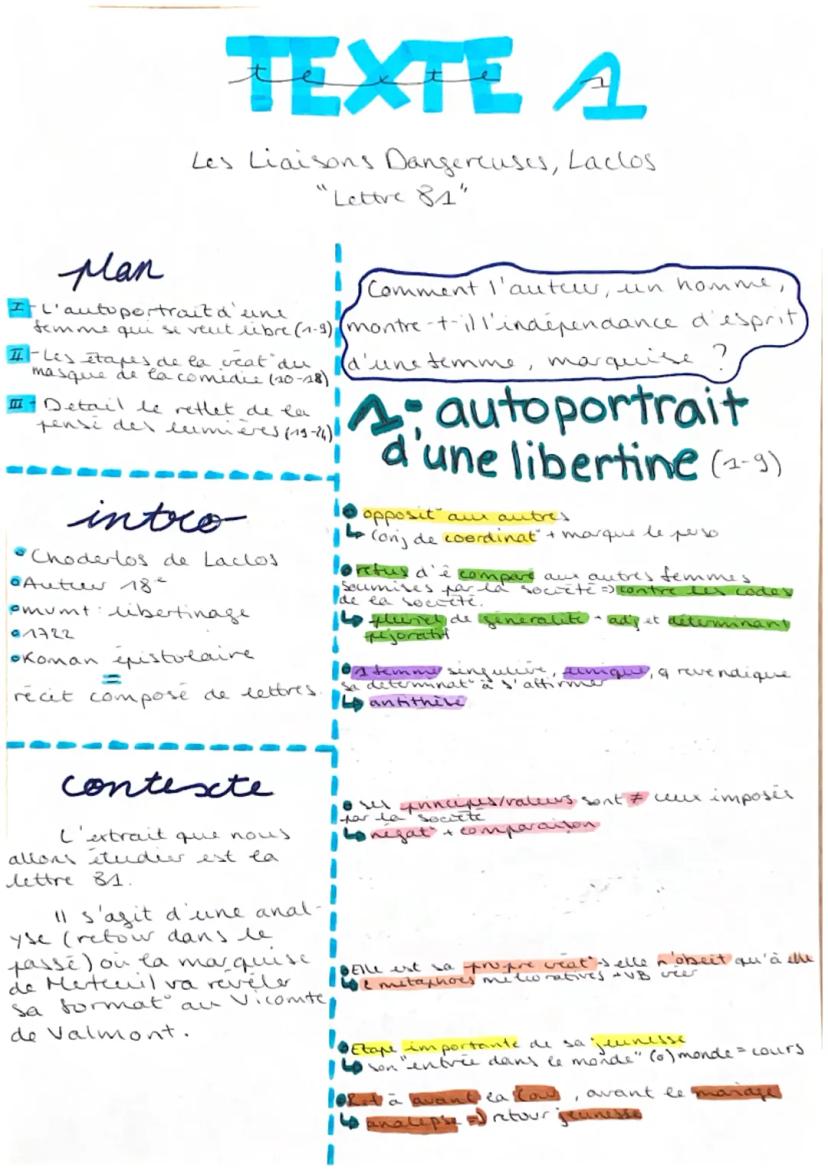 TEXTE 1
texte 1
Les Liaisons Dangereuses, Laclos
"Lettre 81"
plan
I - L'autoportrait d'une
femme qui se veut libre (1-9)
II - Les étapes de la créat° du
masque de la comédie (10-18)
III - Detail le reflet de la
pensé des lumières (19-24)
intro
Choderlos de Laclos
Auteur 18e
mvmt : libertinage
1722
Roman épistolaire
=
récit composé de lettres.
contexte
L'extrait que nous
allons étudier est la
lettre 81.
Il s'agit d'une anal-
yse (retour dans le
passé) où la marquise
de Merteuil va révéler
sa format° au Vicomte
de Valmont.
Comment l'auteur, un homme,
montre-t-il l'indépendance d'esprit
d'une femme, marquise ?
1- autoportrait
d'une libertine (1-9)
opposit° aux autres
↳ conj de coordinat° + marque le perso
refus d'ê comparé aux autres femmes
soumises par la société => contre les codes
de la société.
↳ pluriel de généralité + adj et déterminant
péjoratif
1 femme singulière, unique, q revendique
sa déterminat° à s'affirmer
↳ antithèse
ses principes/valeurs sont ≠ ceux imposés
par la société
↳ négat° + comparaison
Elle est sa propre créat° elle n'obéit qu'à elle
↳ métaphores mélioratives + VB créer
Etape importante de sa jeunesse
↳ son "entrée dans le monde" (o) monde = cours
à avant la , avant le mariage
↳ analepse => retour jeunesse